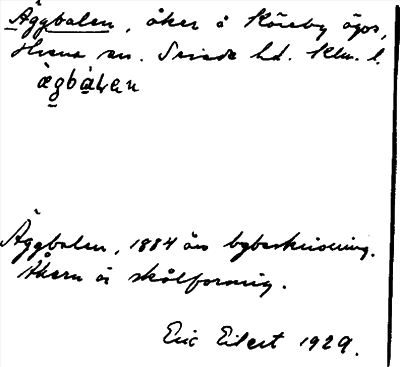 Äggbalen, åker å Kåreby ägor,
Hvena sn. Sevede hd. Klm. l.
ägbàlen
Äggbalen, 1884 års bybeskrivning.
Åkern är skålformig.
Eric Eilert 1929.